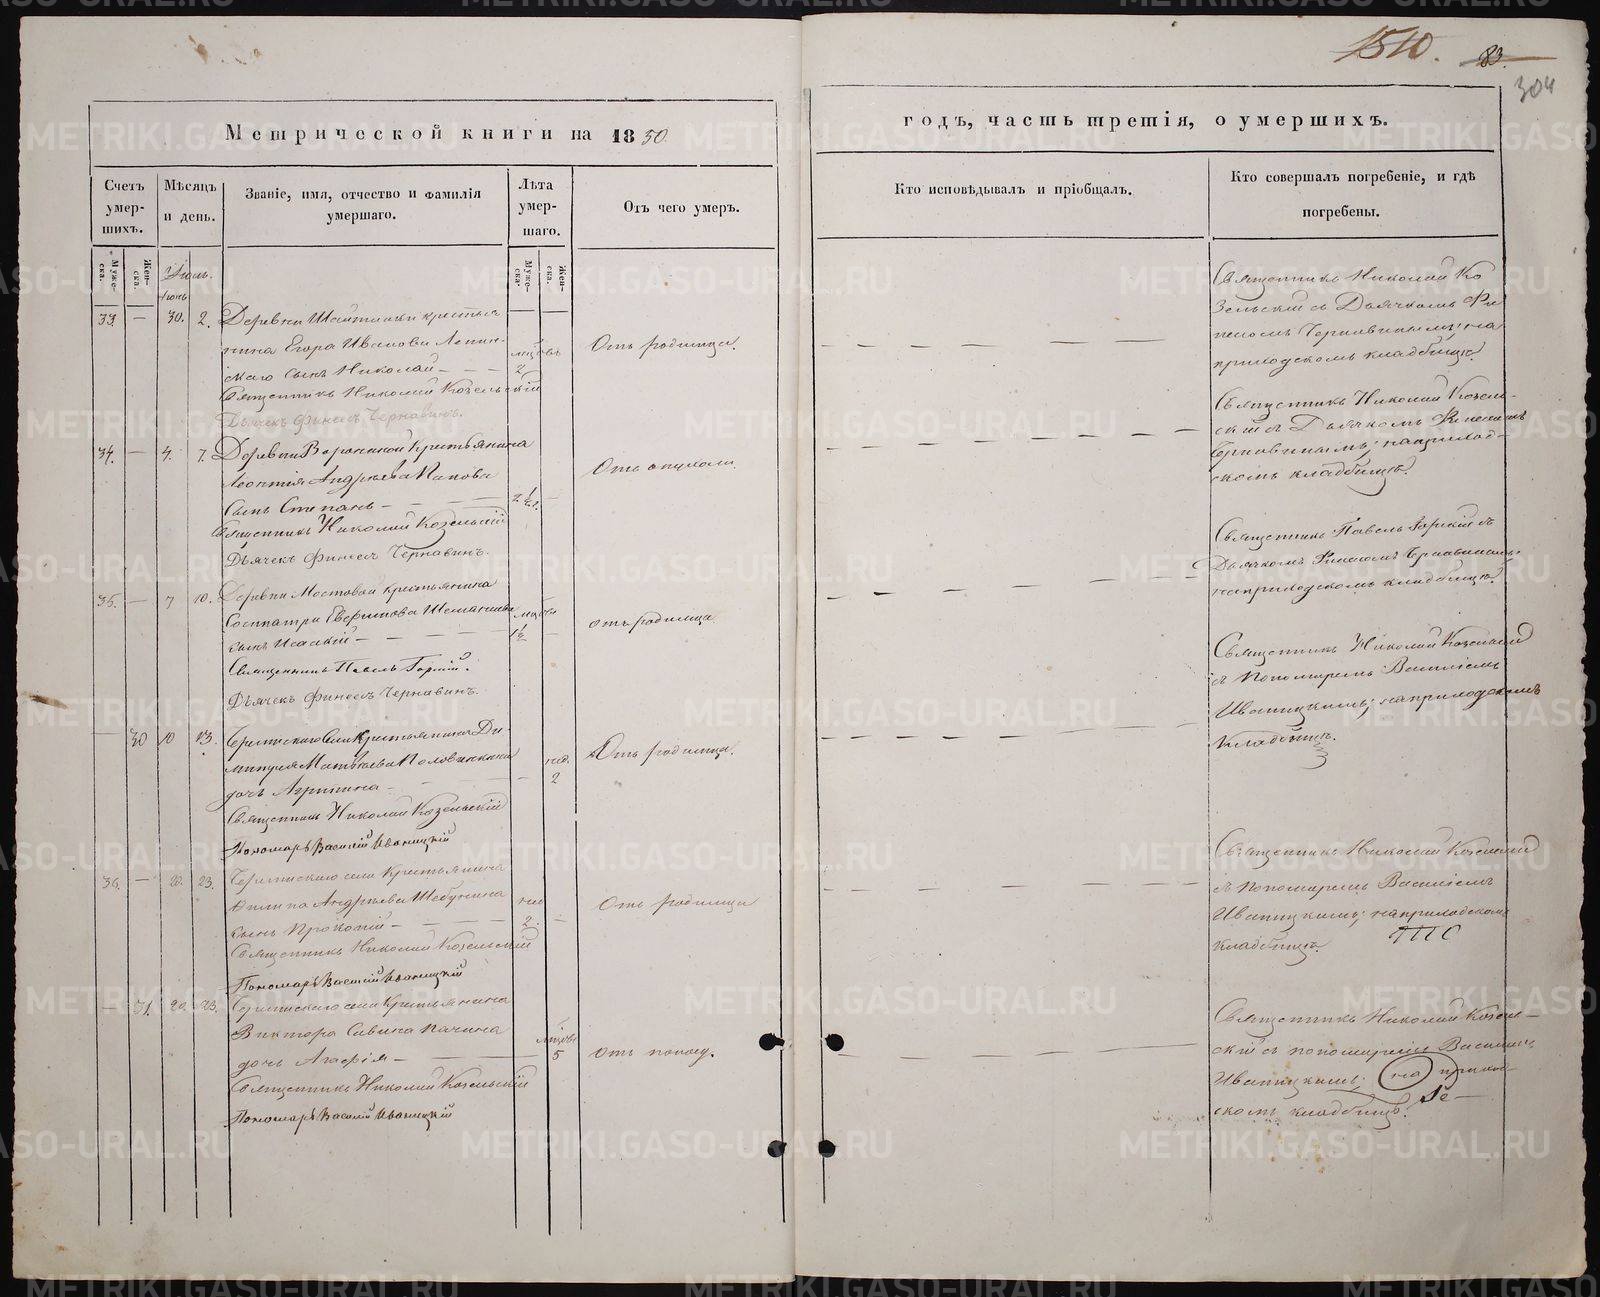 1510.
83.
304
Метрической книги на 1850.
годъ, часть третія, о умершихъ.
Счетъ умер-
шихъ.
Мѣсяцъ
и день.
Званіе, имя, отчество и фамилія
умершаго.
Лѣта
умер-
шаго.
Отъ чего умеръ.
Кто исповѣдывалъ и пріобщалъ.
Кто совершалъ погребеніе, и гдѣ
погребены.
Муже-
ска.
Жен-
ска.
Муже-
ска.
Жен-
ска.
Іюль.
Іюнь
33. — 30. 2. Деревни Шайтанки крестья
нина Егора Иванова Лепин-
скаго сынъ Николай —
2
Отъ родимца.
Священникъ Николай Козельскій
Дьячекъ Финеесъ Чернавинъ.
Священникъ Николай Ко
зельскій съ Дьячкомъ Фи
неесомъ Чернавинымъ; на
приходскомъ кладбищѣ.
34. — 4. 7. Деревни Крестьянина
Леонтія Андреева Попова
сынъ Степанъ —
2 ½
Отъ опухоли.
Священникъ Николай Козельскій
Дьячекъ Финеесъ Чернавинъ.
Священникъ Николай Козель-
скій съ Дьячкомъ Финеесомъ
Чернавинымъ; на приход-
скомъ кладбищѣ.
35. — 7 10. Деревни Мостовой крестьянина
сынъ Исаакій —
1½
отъ родимца
Священникъ Павелъ Горный.
Дьячекъ Финеесъ Чернавинъ.
Священникъ Павелъ съ
Дьячкомъ Финеесомъ Чернавинымъ;
на приходскомъ кладбищѣ.
— 30 10 13. села Крестьянина Ди-
митрія Матвѣева Половинкина
дочь Агрипина —
нед.
2
Отъ родимца.
Священникъ Николай Козельскій
Пономарь Василій Иваницкій
Священникъ Николай Козельскій
съ Пономаремъ Василіемъ
Иваницкимъ; на приходскомъ
кладбищѣ.
36. — 20. 23. села Крестьянина
Филипа Андреева
сынъ Прокопій —
нед
2.
Отъ родимца
Священникъ Николай Козельскій
Пономарь Василій Иваницкій
Священникъ Николай Козельскій
съ Пономаремъ Василіемъ
Иваницкимъ; на приходскомъ
кладбищѣ.
— 31. 20. 23. села Крестьянина
Виктора Савина Пачина
дочь Агафія —
5
Отъ поносу.
Священникъ Николай Козельскій
Пономарь Василій Иваницкій
Священникъ Николай Козель-
скій съ пономаремъ Василіемъ
Иваницкимъ; на приход-
скомъ кладбищѣ.
METRIKI.GASO-URAL.RU